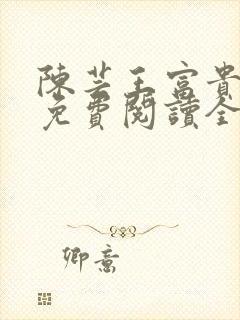 陳芸王富貴
免費閱讀全
卿意